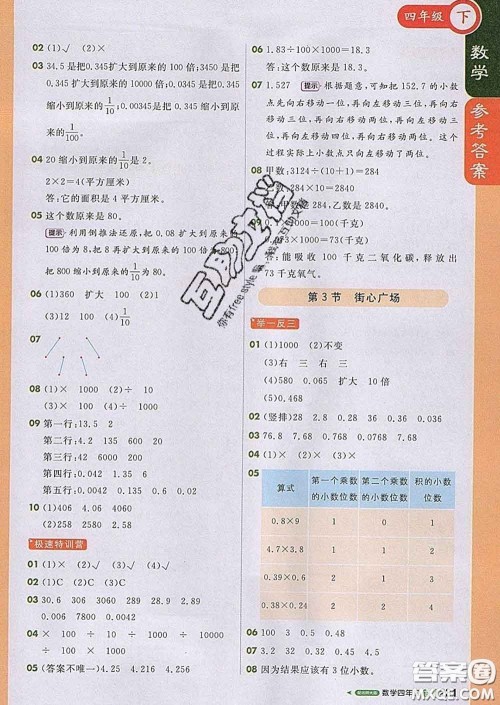 四年级 下
数学
参考答案
02 (1)√ (2)×
03 34.5 是把 0.345 扩大到原来的 100 倍;3450 是把
0.345 扩大到原来的 10000 倍;0.0345 是把 0.345
缩小到原来的1/10;0.00345 是把 0.345 缩小到原来的
1/100。
04 20 缩小到原来的1/10是 2。
2×2=4(平方厘米)
答:面积是 4 平方厘米。
05 这个数原来是 80。
提示 利用倒推法还原,把 0.08 扩大到原来的
100 倍为 8,再扩大到原来的 100 倍为 800,
把 800 缩小到原来的1/10
06 (1)360 扩大 100 (2)4 1/10
07
08 (1)× 1000 (2)÷ 1000
09 第一行:13.5 2
第二行:4.2 135 600
第三行:42 6000 20
第四行:0.042 1.35 6
第五行:0.0042 0.135 0.6 0.02
10 (1)406 4.06 4060
(2)258 2580 2.58
极速特训营
01 (1)× (2)√ (3)√ (4)×
02 (1)C (2)C (3)C
03 30.6 306 3060 289 28.9 2.89
0.006 7800 0.0042
04 × 100 ÷ 10 ÷ 1000 ÷
1000 × 10 ÷ 100 ÷ 10
05 (答案不唯一)4.25 4.216 4.256
06 1.83÷100×1000=18.3
答:这个数原来是 18.3。
07 1.527 提示 根据题意,可知把 152.7 的小数
点先向右移动一位,再向左移动三位,再向右
移动两位,再向左移动三位,再向右移动三
位,再向左移动四位,再向右移动两位。这个
过程实际上小数点只向左移动了两位。
08 甲数:3124÷(10+1)=284
乙数:284×10=2840
答:甲数是 284,乙数是 2840。
答:能吸收 100 千克二氧化碳,释放出
73 千克氧气。
第 3 节 街心广场
举一反三
01 (1)1000 (2)不变
(3)右 三 右 三
(4)580 0.065 扩大 10倍
(5)0.0468
02 (竖排)28 2.8 0.28 36 0.36 0.036
03 76.8 7.68 0.768 0.768
04 (1)√ (2)× (3)× (4)×
05
算式 第一个乘数的小数位数 第二个乘数的小数位数 积的小数位数
0.8×9 1 0 1
4.7×3.8 1 1 2
0.39×0.6 2 1 3
0.38×0.24 2 2 4
06 100 3 0.5 0.48
07 3.2 32 0.32 0.032 0.45 4.5
08 因为结果应该有 3 位小数。
数学四年
互助文档
答案圈